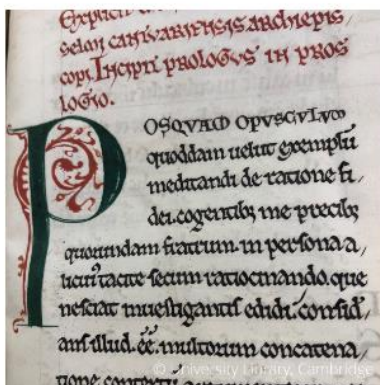 Explicit
selmi cantuariensis archiepis,
copi. Incipit prologus in pros
logio.
POSQVAM OPVSCVLVM
quoddam uelut exemplū
meditandi de ratione fi,
dei. cogentibꝫ me precibꝫ
quorundam fratrum. in persona a,
licui᷒ tacite secum ratiocinando. que
nesciat inuestigantis edidi. consid,
ans illud. eē. multorum concatena,
tione contextū
© University Library, Cambridge